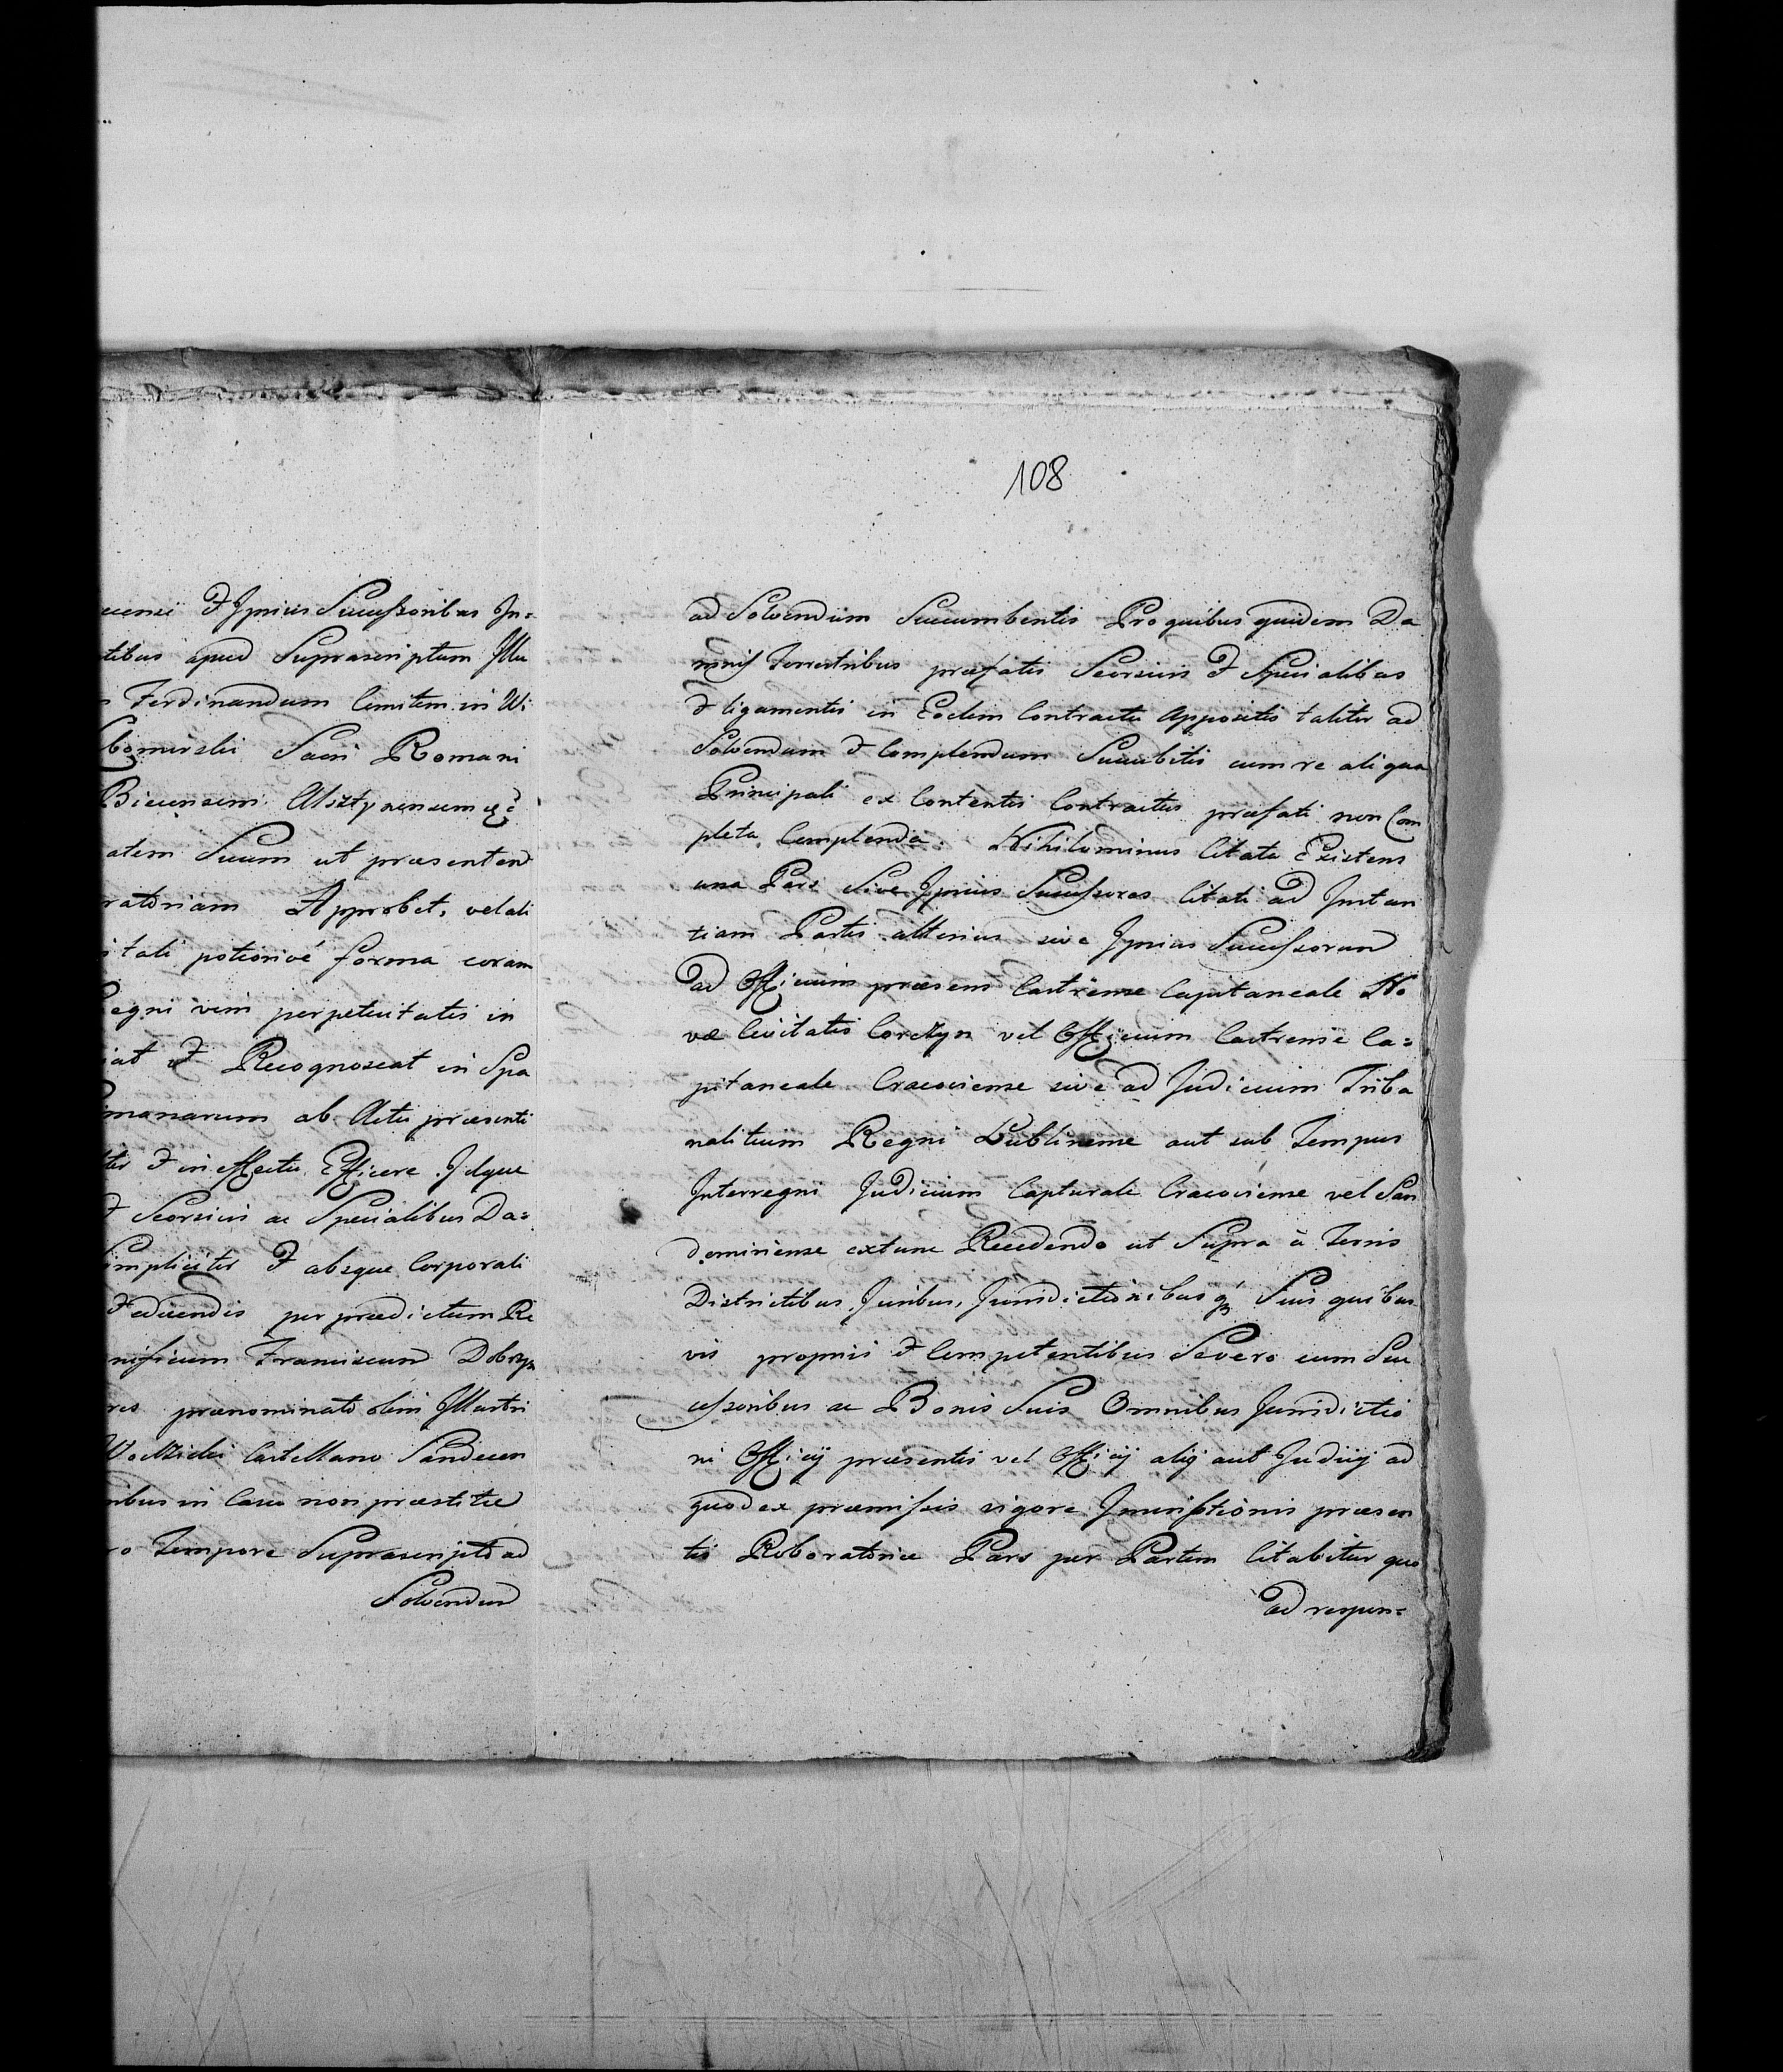 uensi & Ipsius Successoribus In=
tibus apud Suprascriptum Illu
Ferdinandum Comitem in Wi
bomirski Sacri Romani
Biecensem Olsztynensem qz
atem Suum ut praesentem
ratoriam Approbet, vel ali
tali potiorivé forma coram
egni vim perpetuitatis in
iat & Recognoscat in Spa
manarum ab Actu praesenti
ter & in effectu Efficere Idque
& Seorsivis ac Specialibus Da=
impliciter & absque Corporali
& edicendis per praedictum Re
nificum Franciscum Dobrzyn
res praenominato olim Illustri
Wodzicki Castellano Sandecen
nibus in Casu non praestitae
ro Tempore Suprascripto ad
Solvendum
108
ad Solvendum Succumbentis Pro quibus quidem Da
mnis Terrestribus praefatis Seorsivis & Specialibus
& ligamentis in Eodem Contractu Appositis taliter ad
Solvendum & Complendum Succubitis cum re aliqua
Principali ex Contentis Contractus praefati non Com
pleta Complenda. Nihilominus Citata Existens
una Pars Sive Ipsius Successores Citati ad Instan
tiam Partis alterius sive Ipsius Successorum
ad Officium praesens Castrense Capitaneale No
vae Civitatis Corczyn vel Officium Castrense Ca=
pitaneale Cracoviense sive ad Judicium Tribu
nalitium Regni Lublinense aut sub Tempus
Interregni Judicium Capturale Cracoviense vel San
domiriense extunc Recedendo ut Supra a Terris
Districtibus, Juribus, Jurisdictionibus qz Suis quibus
vis propriis & Competentibus Se vero cum Suc
cessoribus ac Bonis Suis Omnibus Jurisdictio
ni Officij praesentis vel Officij alij aut Judicij ad
quod ex praemissis vigore Inscriptionis praesen
tis Roboratoriae Pars per Partem Citabitur quo
ad respon=